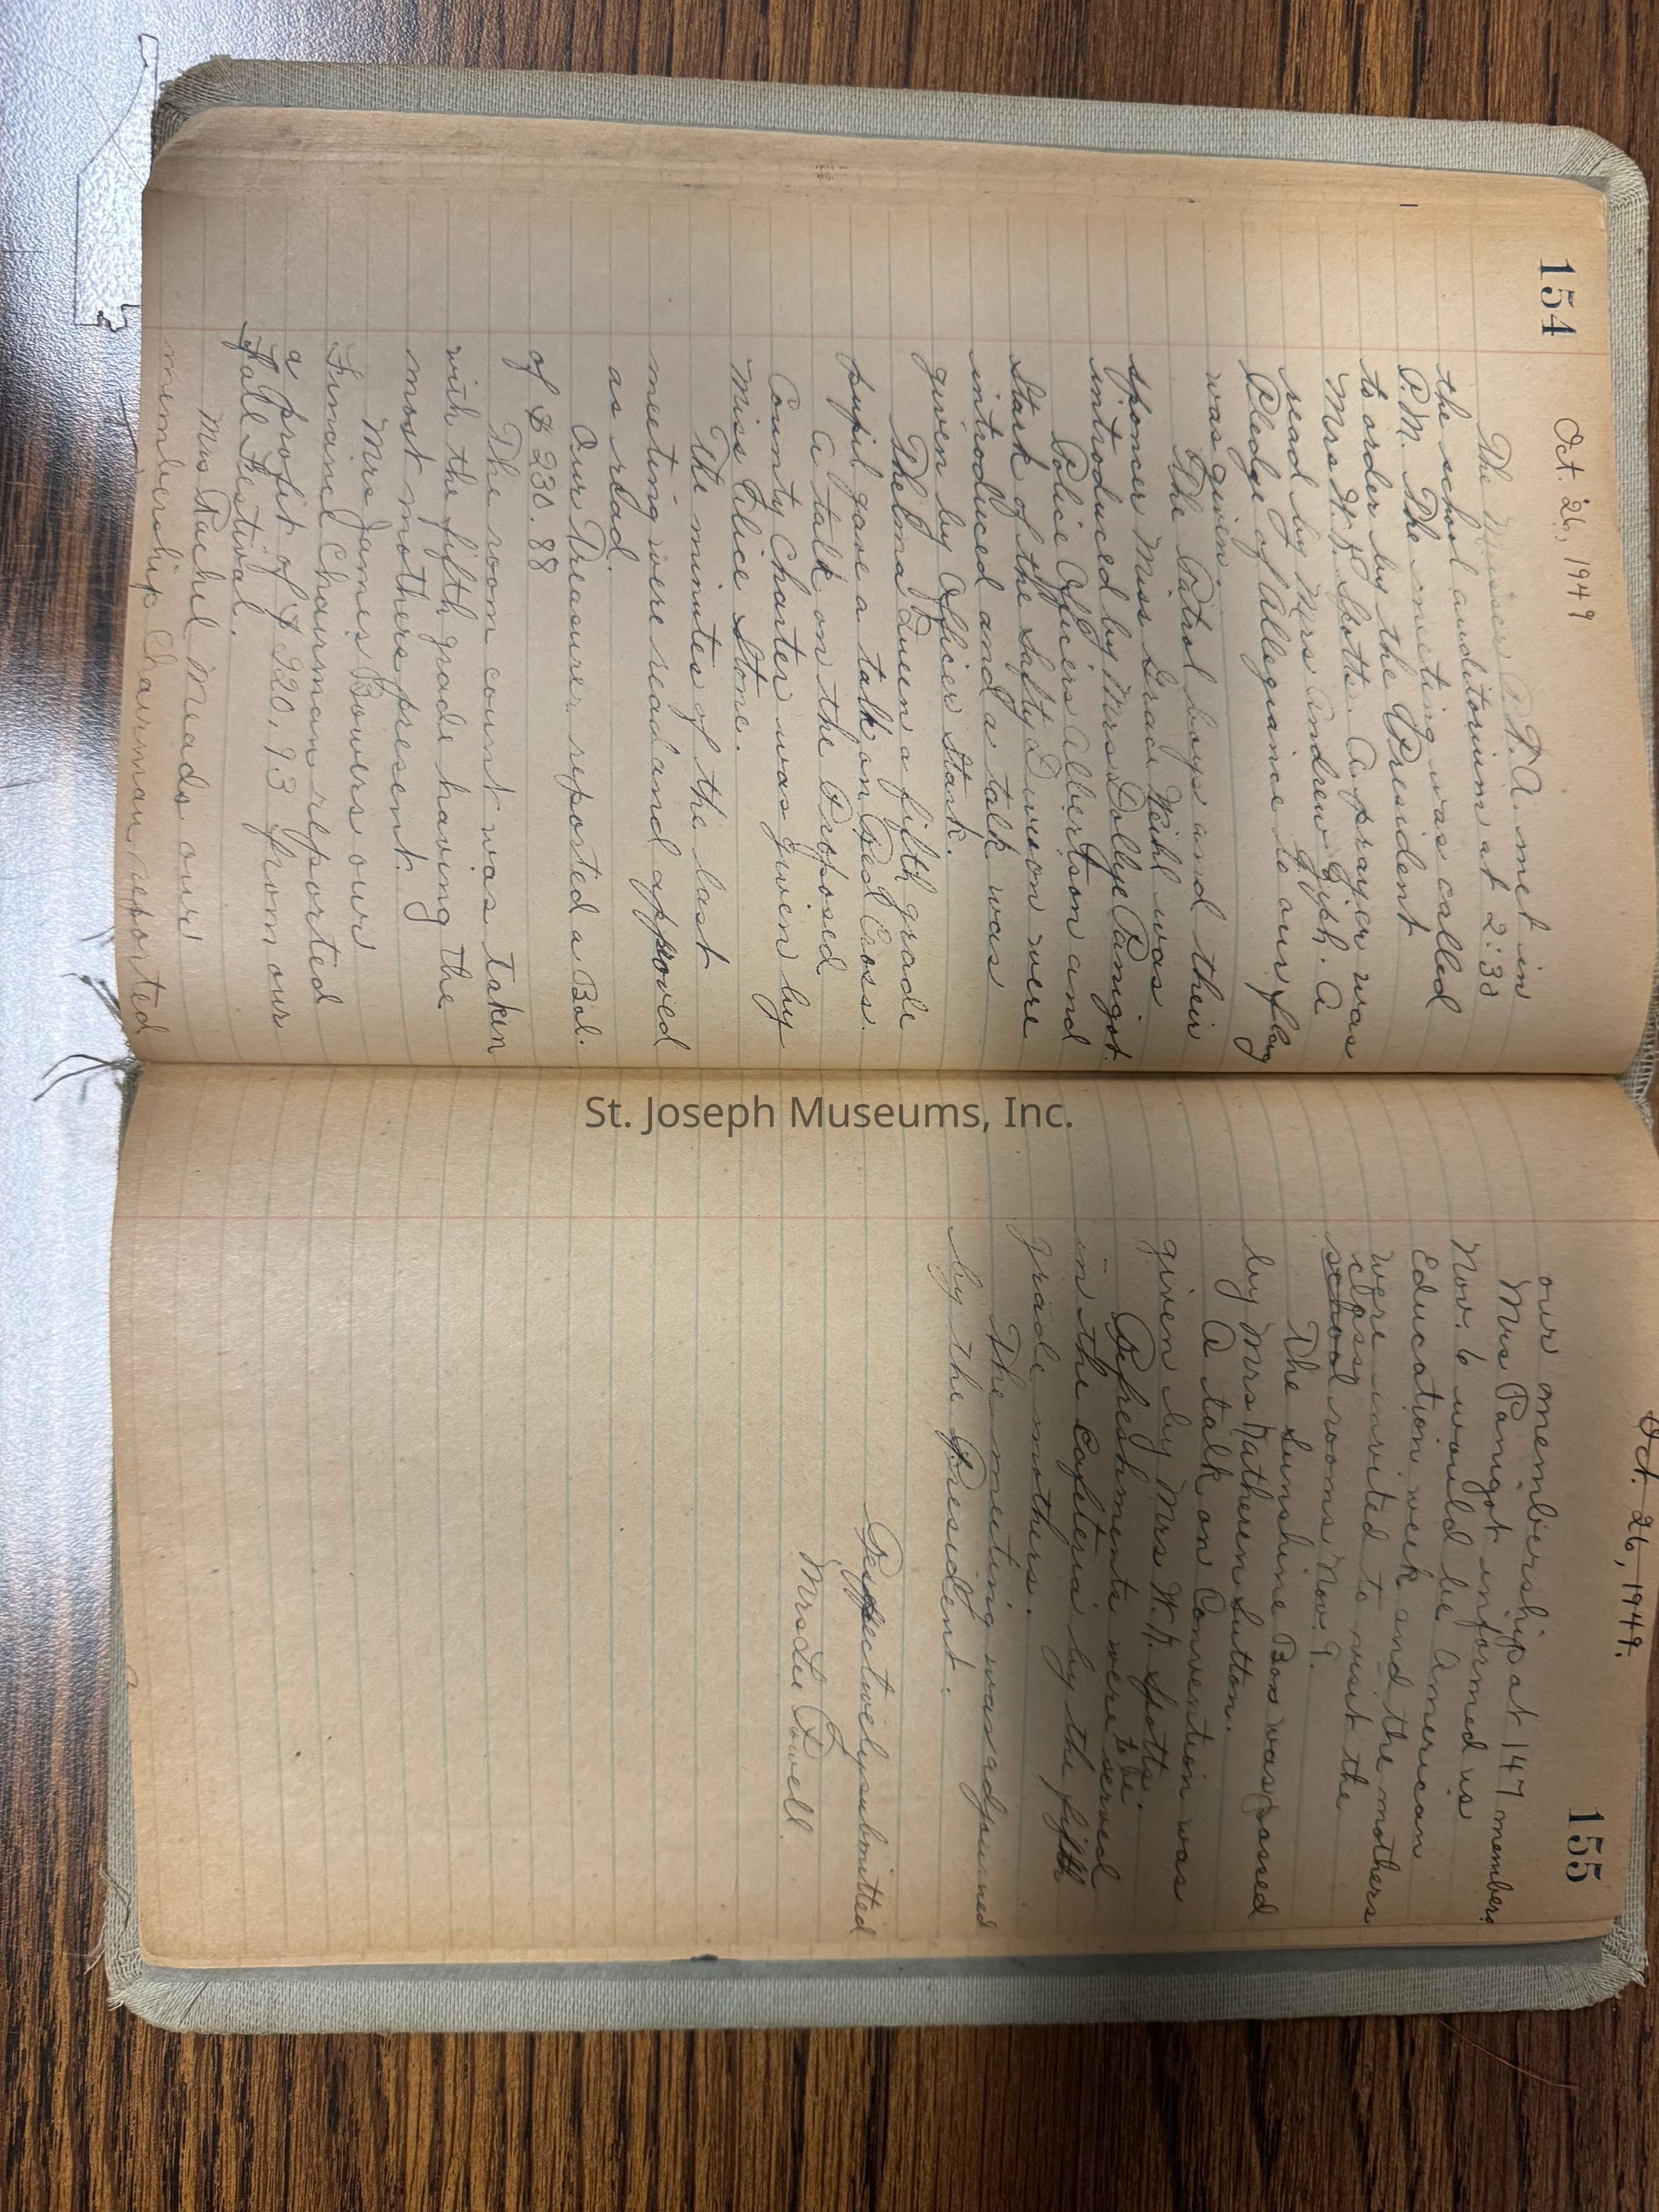 154
Oct. 26, 1949
The Musser P.T.A. met in
the school auditorium at 2:30
P.M. The meeting was called
to order by the President
Mrs W. F. Spotts. A prayer was
read by Mrs Andrew Zysk. A
Pledge of Allegiance to our flag
was given.
The Patrol boys and their
sponer Miss Grace Weihl was
introduced by Mrs Dollye Panigot.
Police Officers Albertson and
Stark of the Safty Divison were
introduced and a talk was
given by Officer Stark.
Thelma Queen a fifth grade
pupil gave a talk on Red Cross.
A talk on the Proposed
County Charter was given by
Miss Alice Stone.
The minutes of the last
meeting were read and approved
as read.
Our Treasurer reported a Bal.
of $ 230.88
The room count was taken
with the fifth grade having the
most mothers present.
Mrs James Bowers our
Finance Chairman reported
a profit of $ 220.93 from our
Fall Festival.
Mrs Rachel Meads our
membership Chairman reported
155
Oct. 26, 1949.
our membership at 147 members.
Mrs Panigot informed us
Nov. 6 would be American
Education week and the mothers
were invited to visit the
class
school rooms Nov. 9.
The Sunshine Box was passed
by Mrs Katheren Sutton.
A talk on Convention was
given by Mrs W. F. Spotts.
to be
Refreshments were served
in the Cafeteria by the fifth
grade mothers.
The meeting was adjourned
by the President.
Respectively submitted
Mrs Lee Powell.
St. Joseph Museums, Inc.